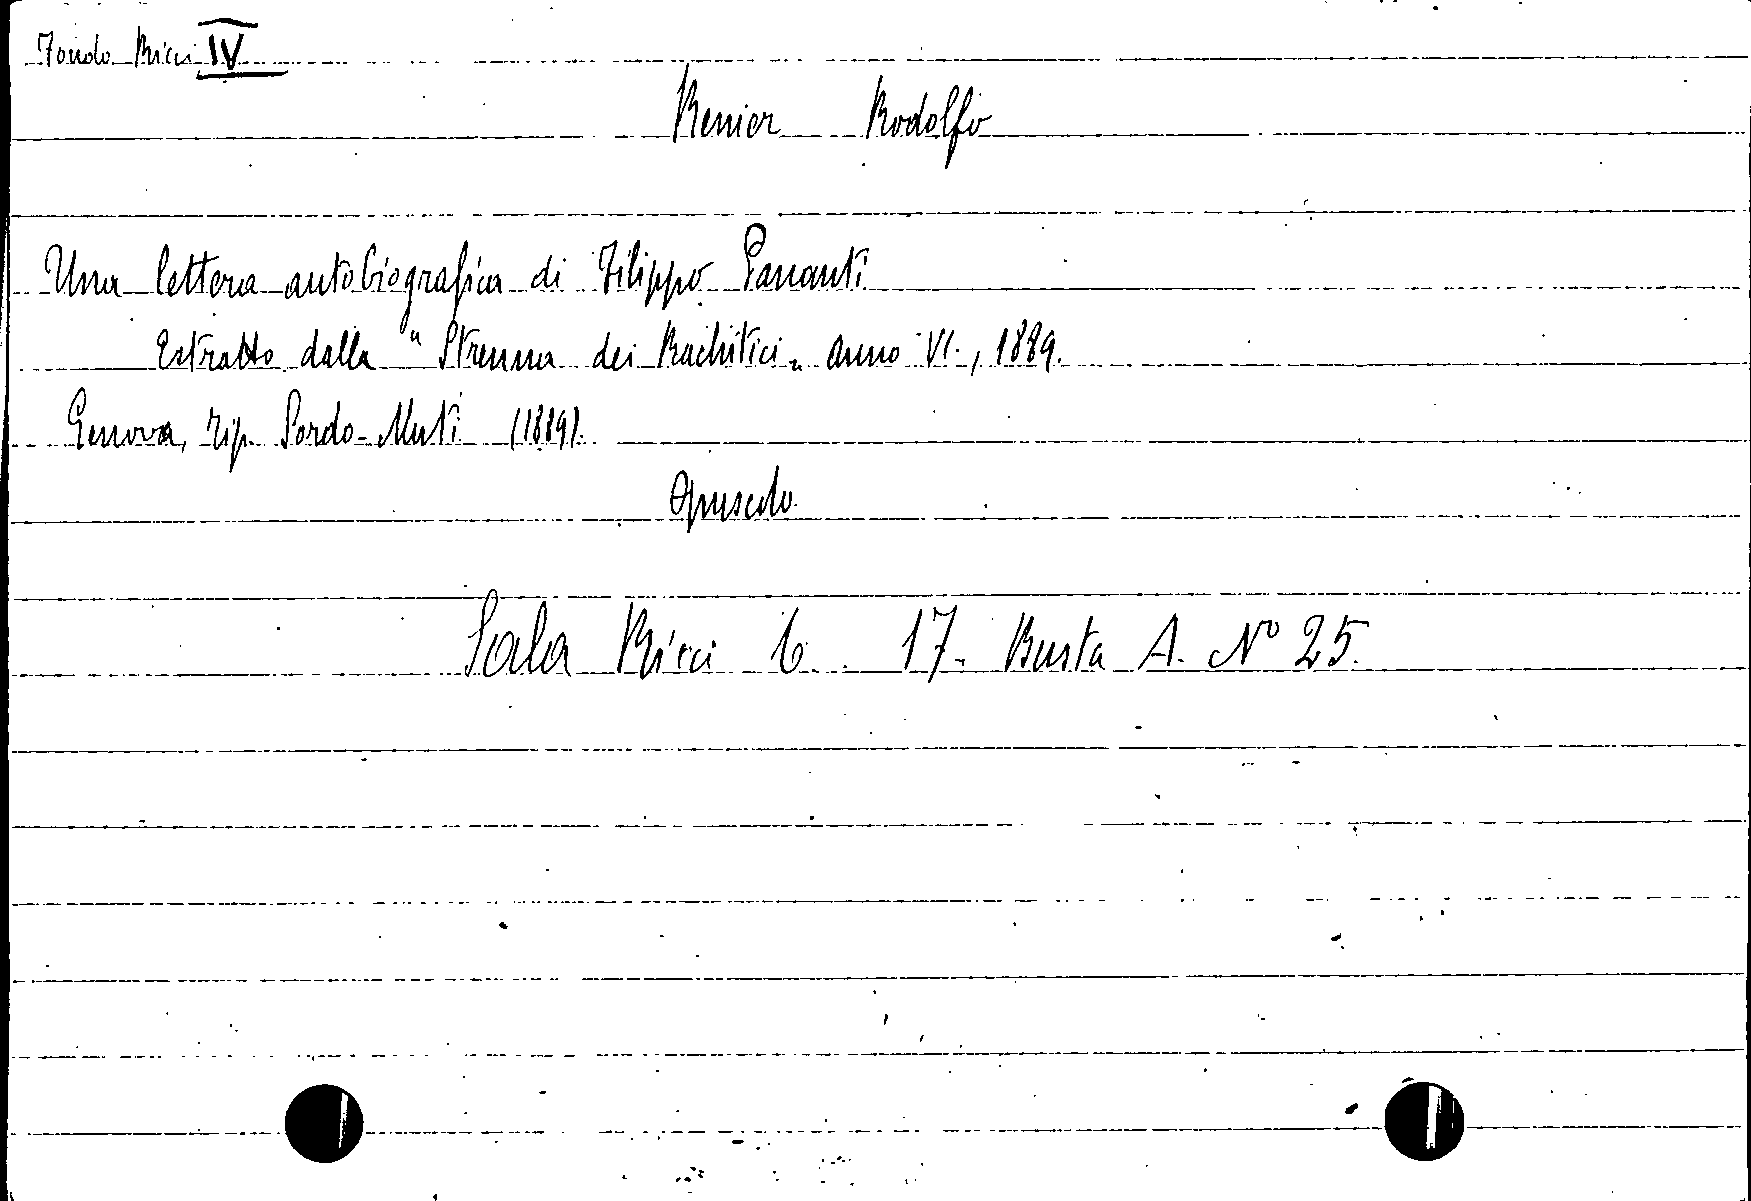 Fondo Ricci IV
Renier Rodolfo
Una lettera autobiografica di Filippo Pananti
Estratto dalla "Strenna dei Rachitici" anno VI., 1889.
Genova, Tip. Sordo-Muti (1889).
Opuscolo
Sala Ricci 6. 17. Busta A. Nº 25.